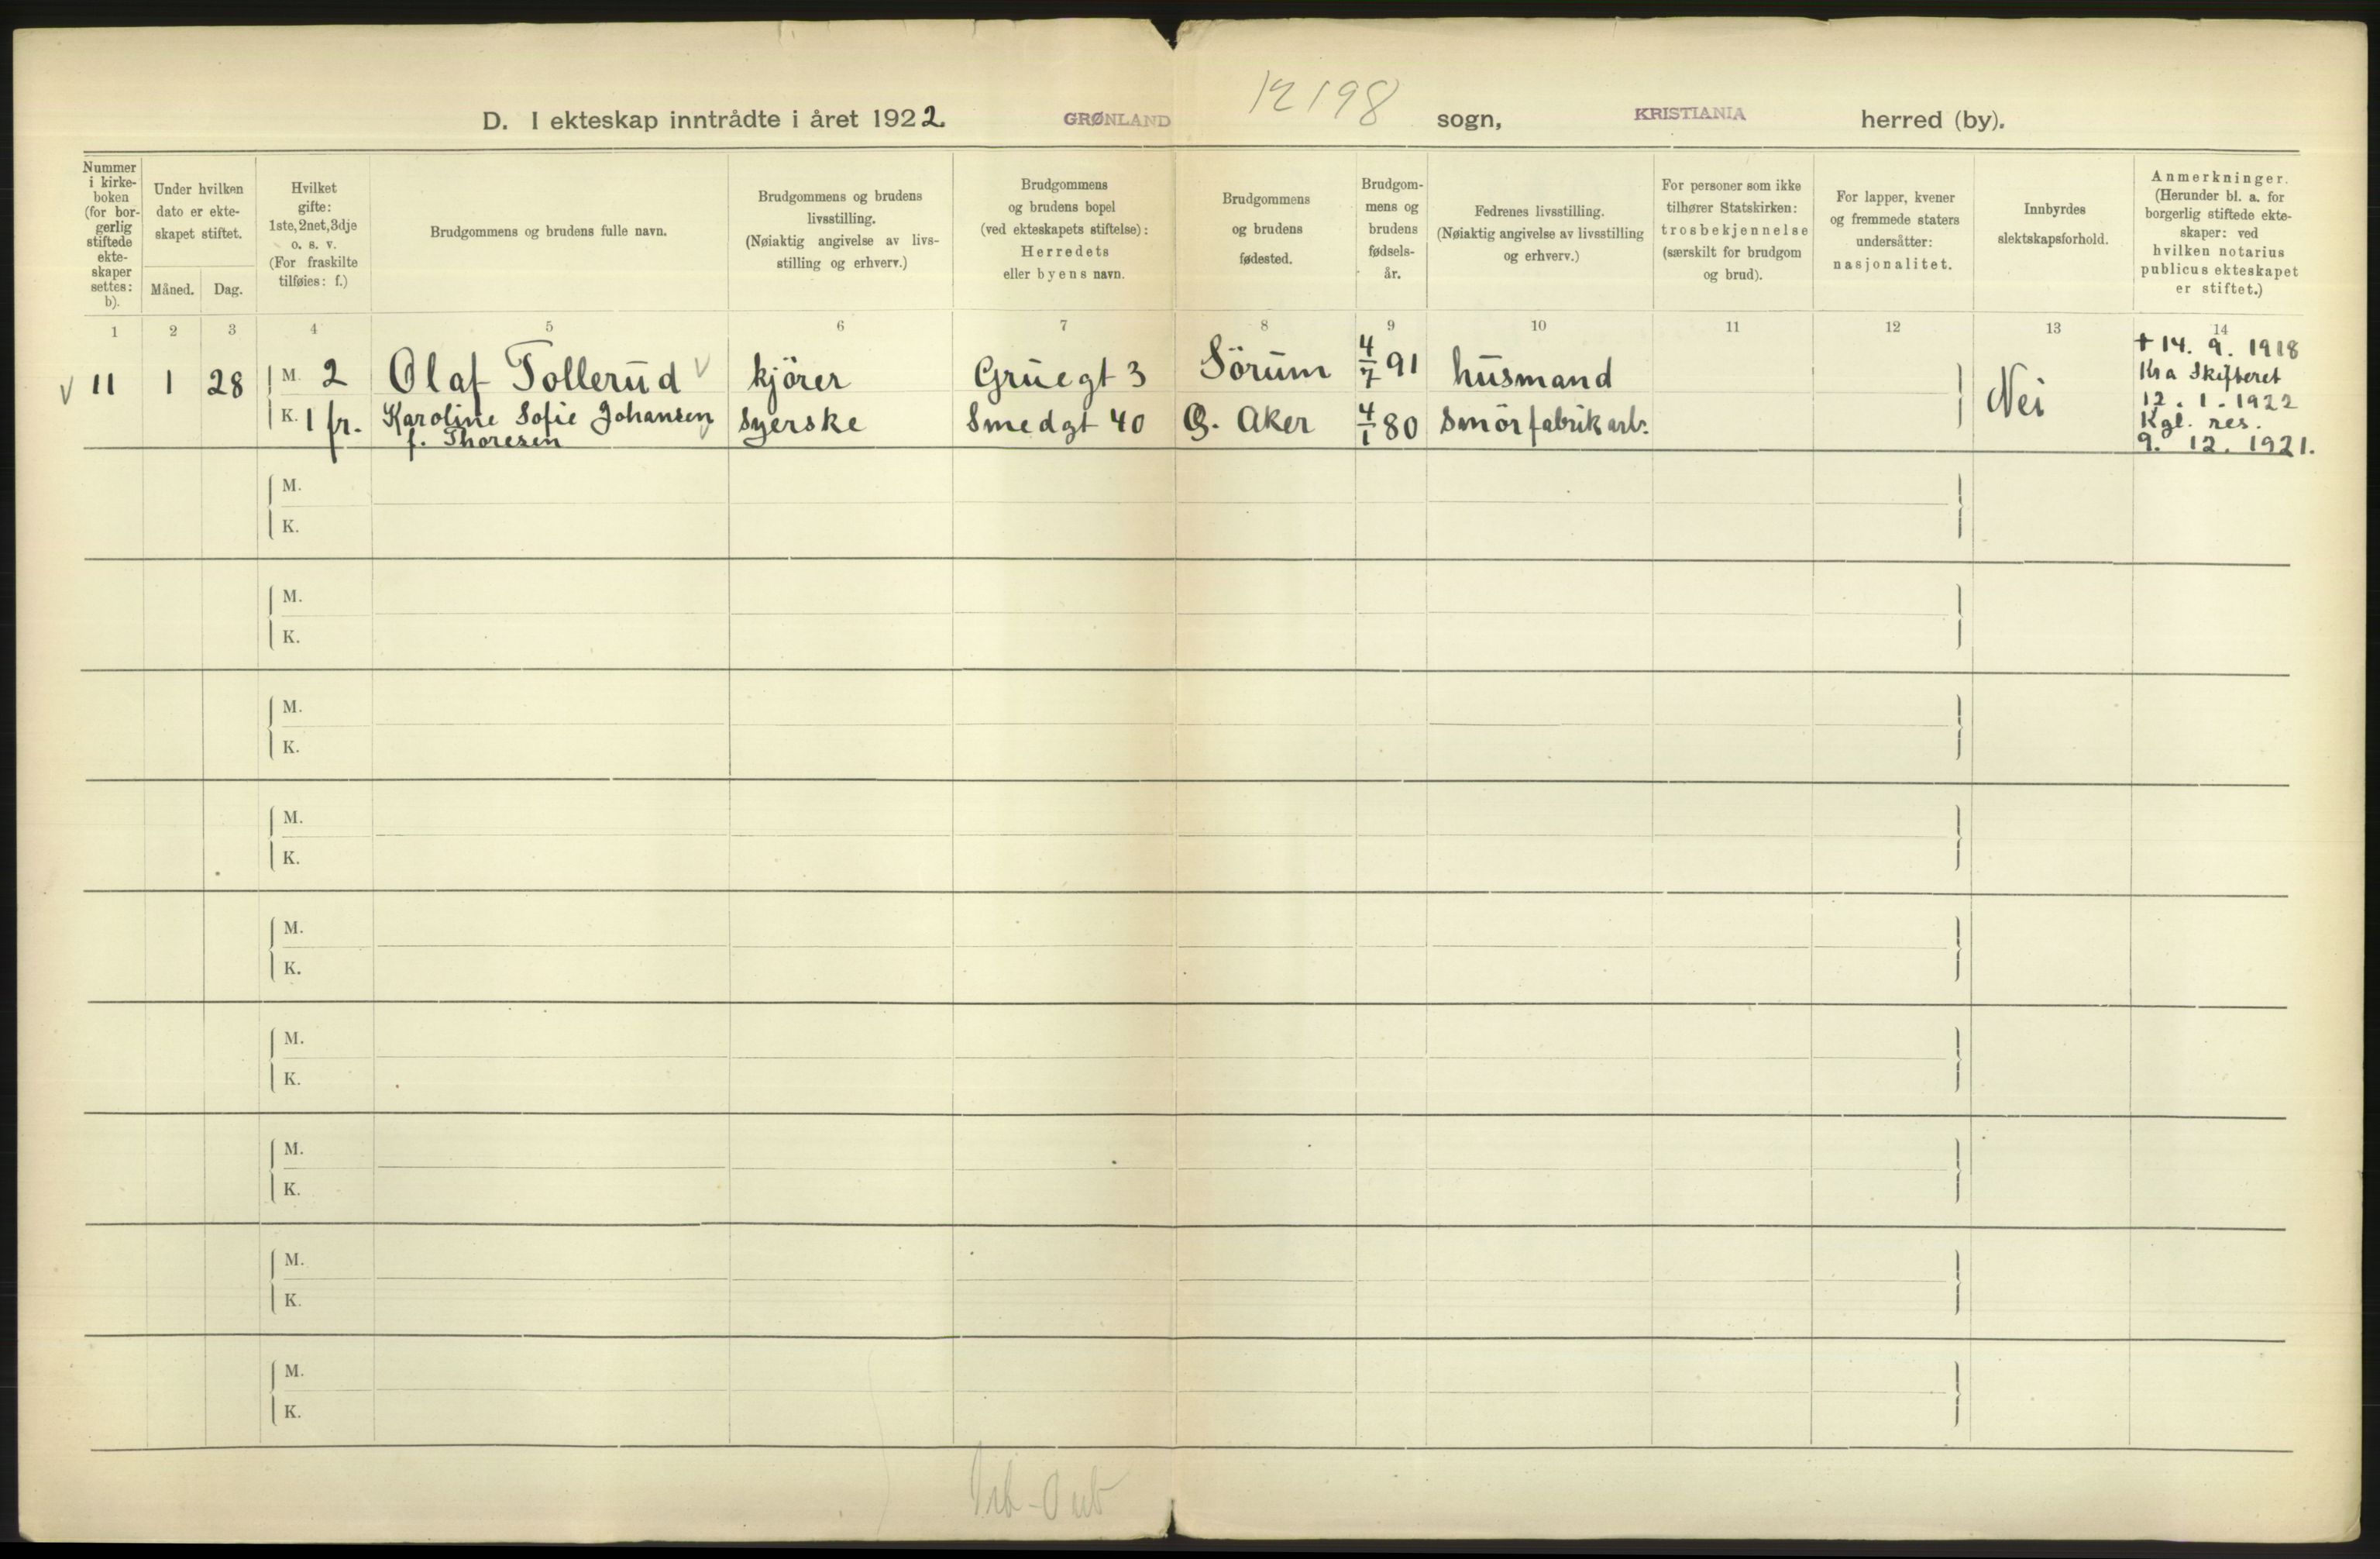 12198
D. I ekteskap inntrådte i året 1922. GRØNLAND sogn, KRISTIANIA herred (by).
Nummer
i kirke-
boken
(for bor-
gerlig
stiftede
ekte-
skaper
settes:
b).
Under hvilken
dato er ekte-
skapet stiftet.
Måned. Dag.
Hvilket
gifte:
1ste, 2net, 3dje
o. s. v.
(For fraskilte
tilføies: f.)
Brudgommens og brudens fulle navn.
Brudgommens og brudens
livsstilling.
(Nøiaktig angivelse av livs-
stilling og erhverv.)
Brudgommens
og brudens bopel
(ved ekteskapets stiftelse):
Herredets
eller byens navn.
Brudgommens
og brudens
fødested.
Brudgom-
mens og
brudens
fødsels-
år.
Fedrenes livsstilling.
(Nøiaktig angivelse av livsstilling
og erhverv.)
For personer som ikke
tilhører Statskirken:
trosbekjennelse
(særskilt for brudgom
og brud).
For lapper, kvener
og fremmede staters
undersåtter:
nasjonalitet.
Innbyrdes
slektskapsforhold.
Anmerkninger.
(Herunder bl. a. for
borgerlig stiftede ekte-
skaper: ved
hvilken notarius
publicus ekteskapet
er stiftet.)
1 2 3 4 5 6 7 8 9 10 11 12 13 14
v 11 1 28 M. 2 Olaf Tollerud v kjörer Gruegt 3 Sörum 4/7 91 husmand
K. 1 fr. Karoline Sofie Johansen syerske Smedgt 40 Ø. Aker 4/1 80 Smörfabrikarb.
f. Thoresen
Nei
+ 14. 9. 1918
Kra Skifteret
12. 1. 1922
Kgl. res.
9. 12. 1921.
M.
K.
M.
K.
M.
K.
M.
K.
M.
K.
M.
K.
M.
K.
M.
K.
M.
K.